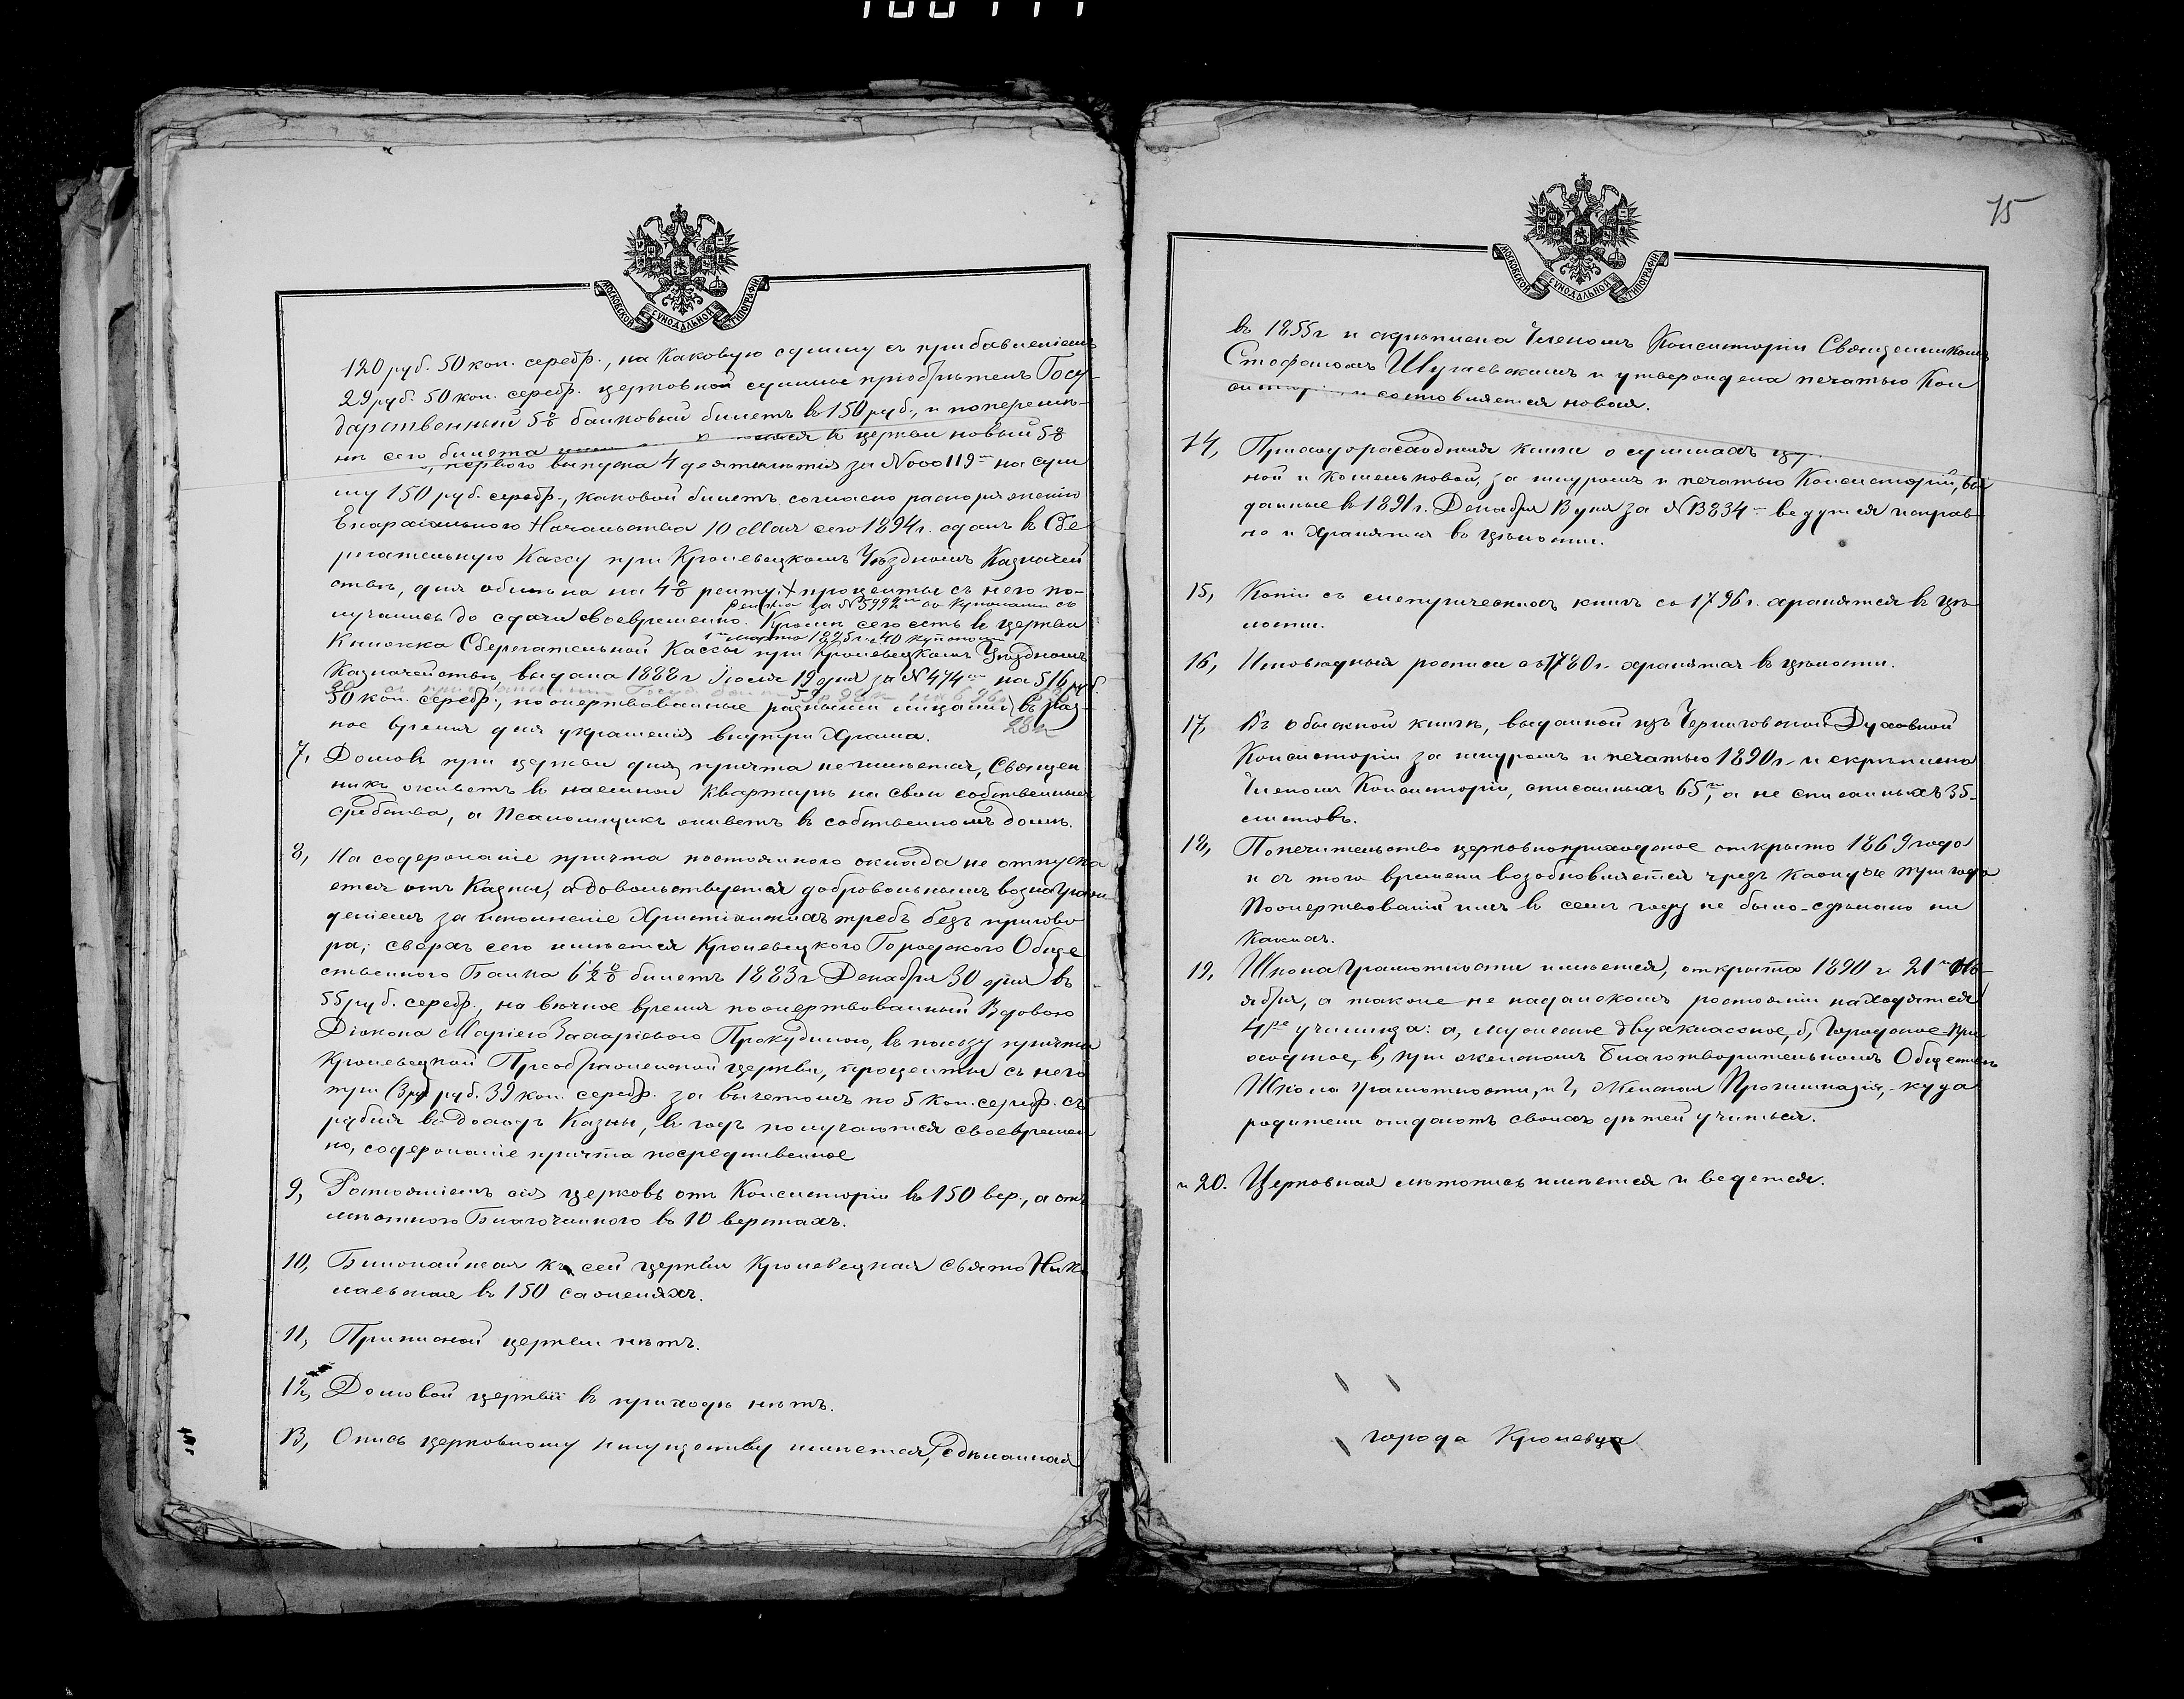 МОСКОВСКОЙ СѴНОДАЛЬНОЙ ТИПОГРАФІИ
120 руб. 50 коп. серебр., на каковую сумму съ прибавленіемъ
29 руб. 50 коп. серебр. церковной суммы пріобрѣтенъ Госу-
дарственный 5% банковый билетъ въ 150 руб., и по перемѣ-
нѣ сего билета къ церкви новый 5%
перваго выпуска 4 десятилѣтія за №00119 на сум
му 150 руб. серебр., каковой билетъ согласно распоряженію
Епархіальнаго Начальства 10 Мая сего 1894 г. сданъ въ Сбе
регательную Кассу при Кролевецкомъ Уѣздномъ Казначей
ствѣ, для обмѣна на 4% ренту. + проценты съ него по-
рента за №5992 съ купонами съ
лучались до сдачи своевременно. Кромѣ сего есть въ церкви
1го марта 1895 г. 40 купоновъ
Книжка Сберегательной Кассы при Кролевецкомъ Уѣздномъ
Казначействѣ, выдана 1888 г. Іюля 19 дня за №474 на 516 руб.
50 коп. серебр., пожертвованные разными лицами въ раз-
ное время для украшенія внутри Храма.
28 к
7, Домовъ при церкви для причта не имѣется, Священ
никъ живетъ въ наемной квартирѣ на свои собственныя
средства, а Псаломщикъ живетъ въ собственномъ домѣ.
8, На содержаніе причта постояннаго оклада не отпуска
ется отъ Казны, а довольствуется добровольнымъ вознагражд
деніемъ за исполненіе Христіанскихъ требъ безъ пригово
ра; сверхъ сего имѣется Кролевецкаго Городскаго Обще
ственнаго Банка 6½% билетъ 1883 г. Декабря 30 дня въ
55 руб. серебр., на вѣчное время пожертвованный Вдовою
Діакона Маріею Захаріевою Прокудиною, въ пользу причта
Кролевецкой Преображенской церкви, проценты съ него
три (3) руб. 39 коп. серебр. за вычетомъ по 5 коп. серебр. съ
рубля въ доходъ Казны, въ годъ получаются своевремен
но, содержаніе причта посредственное
9, Разстояніемъ сія церковь отъ Консисторіи въ 150 вер., а отъ
мѣстнаго Благочиннаго въ 10 верстахъ.
10, Ближайшая къ сей церкви Кролевецкая Свято Нико
лаевская въ 150 саженяхъ.
11, Приписной церкви нѣтъ.
12, Домовой церкви въ приходѣ нѣтъ.
13, Опись церковному имуществу имѣется, сдѣланная
15
МОСКОВСКОЙ СѴНОДАЛЬНОЙ ТИПОГРАФІИ
въ 1855 г. и скрѣплена Членомъ Консисторіи Священникомъ
Стефаномъ Шугаевскимъ и утверждена печатью Кон
систоріи, и составляется новая.
14, Приходорасходныя книги о суммахъ
ной и кошельковой, за шнуромъ и печатью Консисторіи, вы
данные въ 1891 г. Декабря 13 дня за №13834 ведутся исправ
но и хранятся въ цѣлости.
15, Копіи съ метрическихъ книгъ съ 1796 г. хранятся въ цѣ
лости.
16, Исповѣдныя росписи съ 1780 г. хранятся въ цѣлости.
17, Въ обыскной книгѣ, выданной изъ Черниговской Духовной
Консисторіи за шнуромъ и печатью 1890 г. и скрѣплена
Членомъ Консисторіи, списанныхъ 65, а не списанныхъ 35-
листовъ.
18, Попечительство церковноприходское открыто 1869 года
и съ того времени возобновляется чрезъ каждые три года.
Пожертвованія имъ въ семъ году не было-сдѣлано ни
какихъ.
19, Школа грамотности имѣется, открыта 1890 г. 21 Но-
ября, а также не надалекомъ разстояніи находятся
4ре училища: а, мужское двухклассное, б, Городское-При
ходское, в, при женскомъ Благотворительномъ Обществѣ
Школа грамотности, и г, Женская Прогимназія, - куда
родители отдаютъ своихъ дѣтей учиться.
и 20. Церковная лѣтопись имѣется и ведется.
города Кролевца